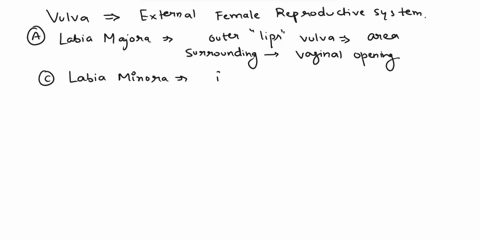 Vulva ⇒ External Female Reproductive system.
Ⓐ Labia Majora ⇒ outer "lips" vulva ⇒ area
surrounding → vaginal opening
Ⓒ Labia Minora ⇒ i